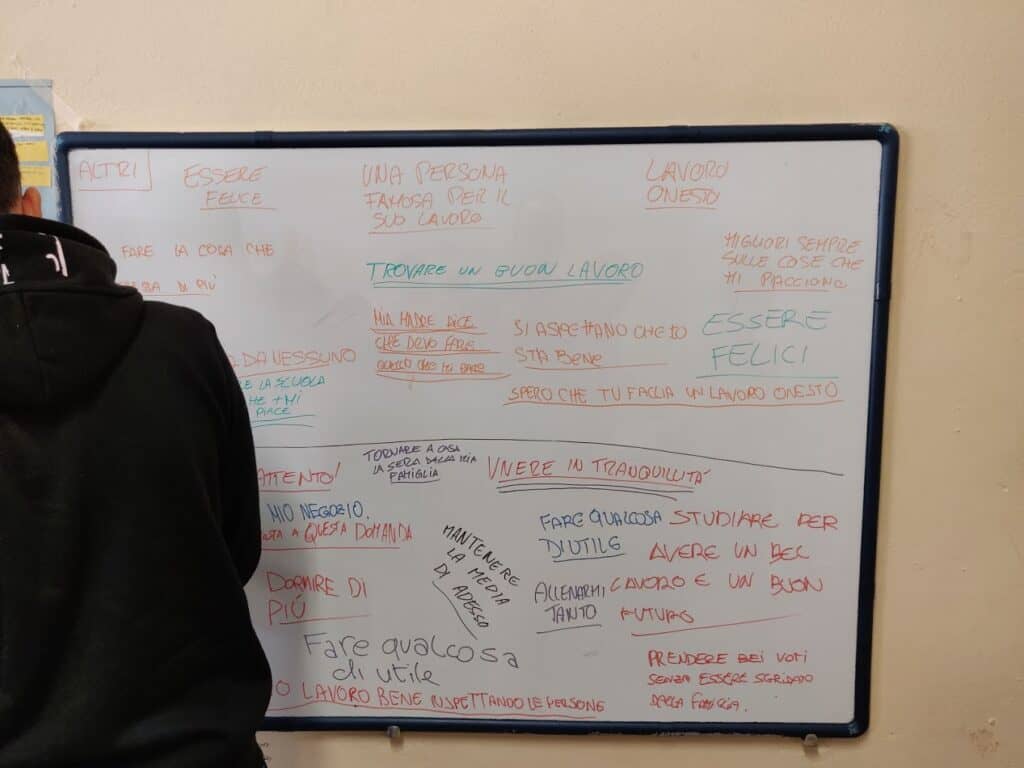 ALTRI
ESSERE
FELICE
UNA PERSONA
FAMOSA PER IL
SUO LAVORO
LAVORO
ONESTO
FARE LA COSA CHE
DI PIÙ
TROVARE UN BUON LAVORO
MIGLIORI SEMPRE
SULLE COSE CHE
MI PIACCIONO
MIA MADRE DICE
CHE DEVO FARE
QUELLO CHE MI PARE
SI ASPETTANO CHE IO
STIA BENE
ESSERE
FELICI
SPERO CHE TU FACCIA UN LAVORO ONESTO
DA NESSUNO
LA SCUOLA
CHE + MI
PIACE
TORNARE A CASA
LA SERA DALLA MIA
FAMIGLIA
VIVERE IN TRANQUILLITÀ
ATTENTO
MIO NEGOZIO.
A QUESTA DOMANDA
MANTENERE
LA MEDIA
DI ADESSO
FARE QUALCOSA
DI UTILE
STUDIARE PER
AVERE UN BEL
LAVORO E UN BUON
FUTURO
DORMIRE DI
PIÙ
ALLENARMI
TANTO
Fare qualcosa
di utile
LAVORO BENE RISPETTANDO LE PERSONE
PRENDERE BEI VOTI
SENZA ESSERE SGRIDATO
DALLA FAMIGLIA.